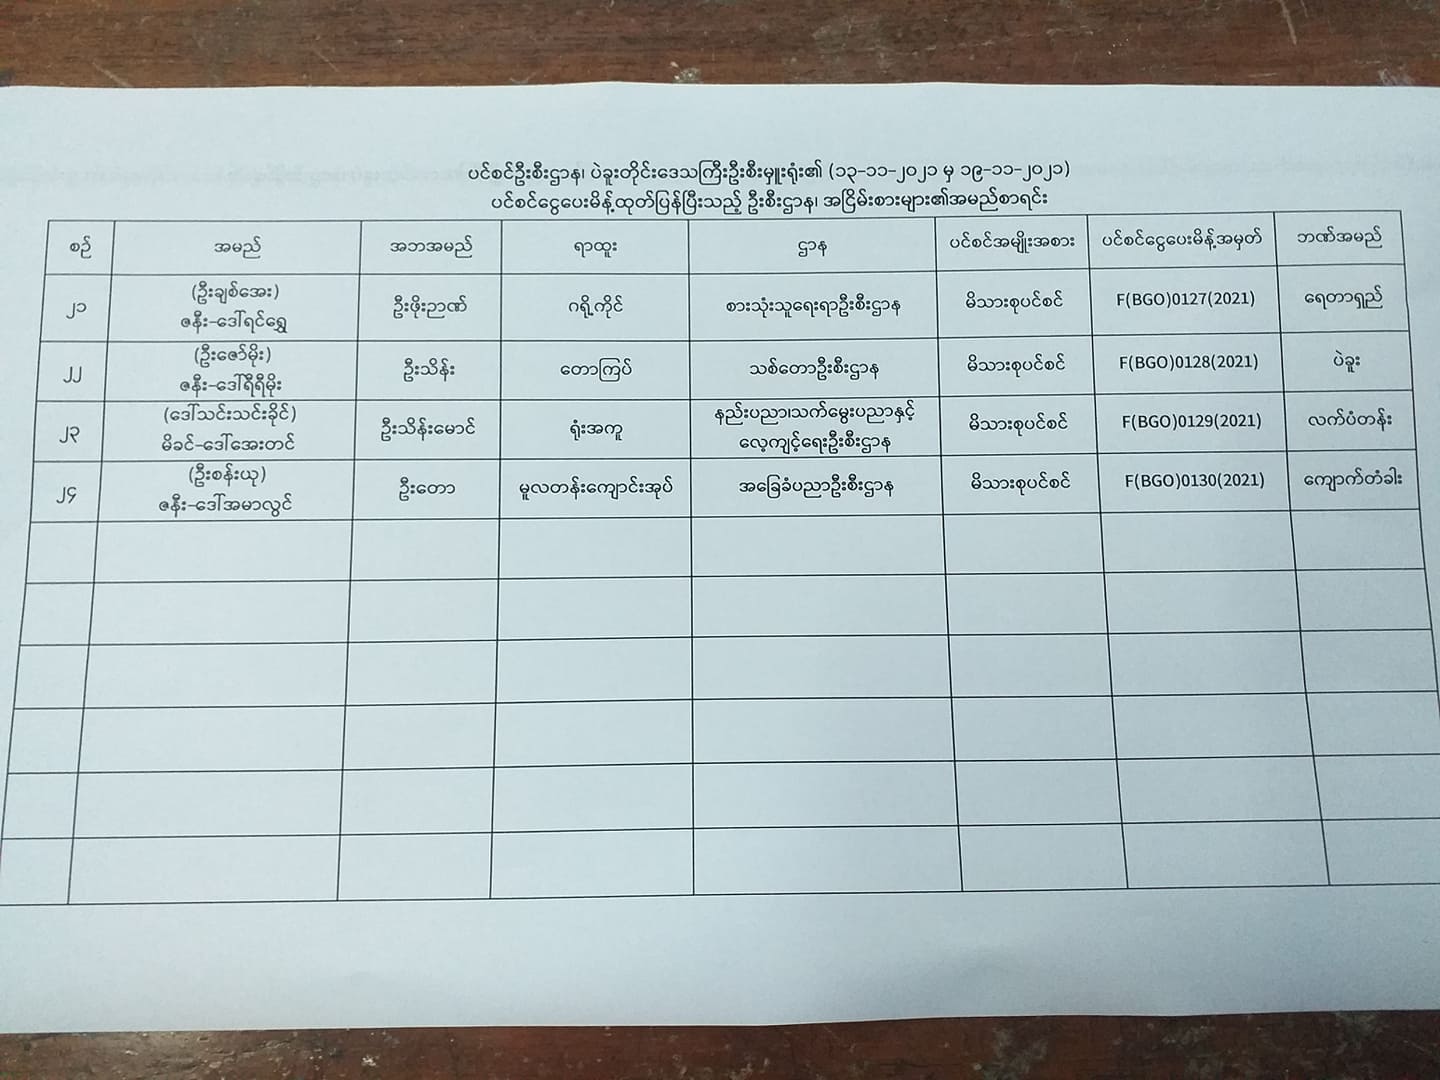 ပင်စင်ဦးစီးဌာန၊ ပဲခူးတိုင်းဒေသကြီးဦးစီးမှူးရုံး၏ (၁၃-၁၁-၂၀၂၁ မှ ၁၉-၁၁-၂၀၂၁)
ပင်စင်ငွေပေးမိန့်ထုတ်ပြန်ပြီးသည့် ဦးစီးဌာန၊ အငြိမ်းစားများ၏အမည်စာရင်း
စဉ် အမည် အဘအမည် ရာထူး ဌာန ပင်စင်အမျိုးအစား ပင်စင်ငွေပေးမိန့်အမှတ် ဘဏ်အမည်
(ဦးချစ်အေး)
၂၁ ဇနီး-ဒေါ်ရင်ရွှေ ဦးဖိုးဉာဏ် ဂရို့ကိုင် စားသုံးသူရေးရာဦးစီးဌာန မိသားစုပင်စင် F(BGO)0127(2021) ရေတာရှည်
(ဦးဇော်မိုး)
၂၂ ဇနီး-ဒေါ်ရီရီမိုး ဦးသိန်း တောကြပ် သစ်တောဦးစီးဌာန မိသားစုပင်စင် F(BGO)0128(2021) ပဲခူး
(ဒေါ်သင်းသင်းခိုင်) နည်းပညာ၊သက်မွေးပညာနှင့်
၂၃ မိခင်-ဒေါ်အေးတင် ဦးသိန်းမောင် ရုံးအကူ လေ့ကျင့်ရေးဦးစီးဌာန မိသားစုပင်စင် F(BGO)0129(2021) လက်ပံတန်း
(ဦးစန်းယု)
၂၄ ဇနီး-ဒေါ်အမာလွင် ဦးတော မူလတန်းကျောင်းအုပ် အခြေခံပညာဦးစီးဌာန မိသားစုပင်စင် F(BGO)0130(2021) ကျောက်တံခါး